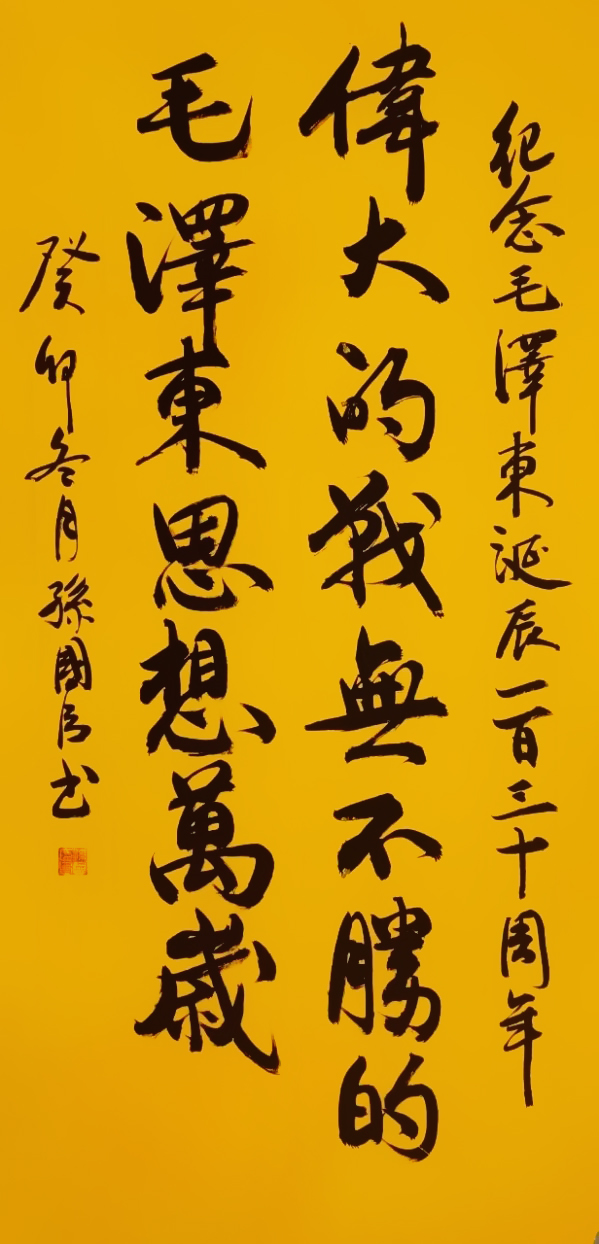 紀念毛澤東誕辰一百三十周年
偉大的戰無不勝的
毛澤東思想萬歲
癸卯冬月孫國
书